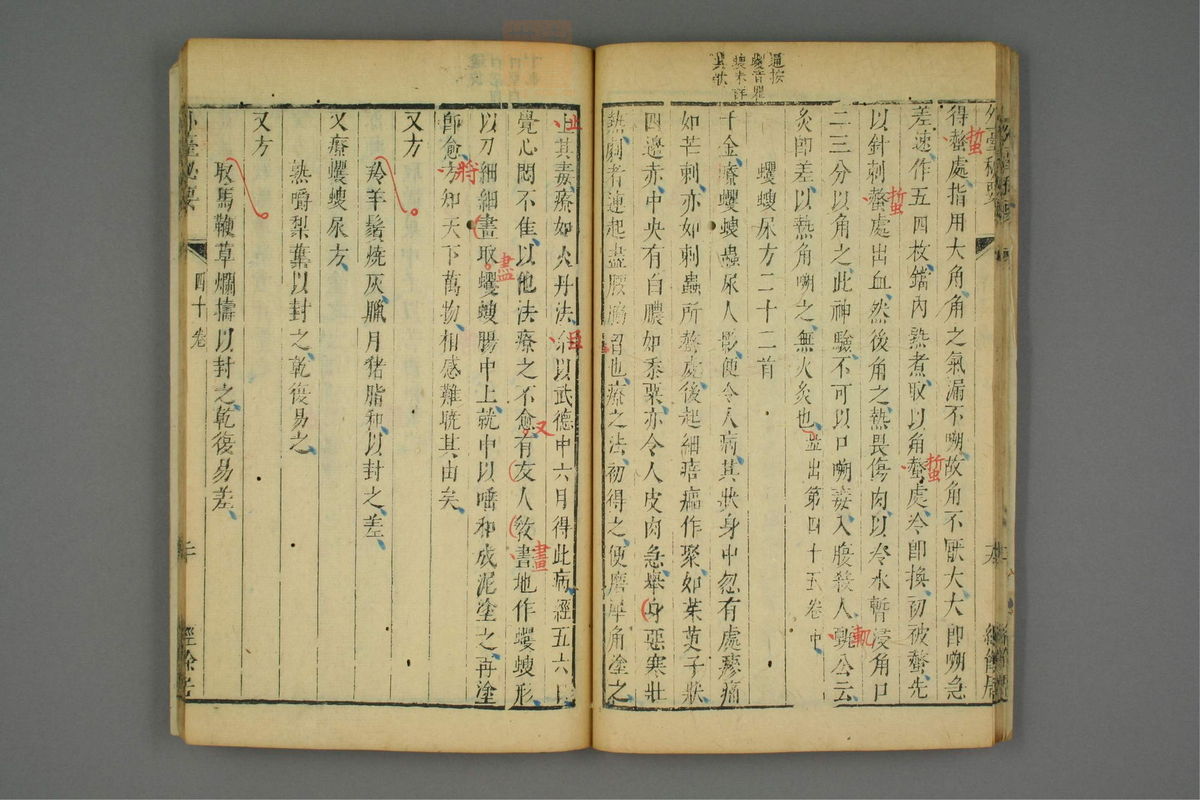 得螫處指用大角角之氣漏不嗍故角不厭大大即嗍急
差速作五四枚鐺內熟煮取以角螫處冷即換初被螫先
以針刺螫處出血然後角之熱畏傷肉以冷水暫浸角口
二三分以角之此神驗不可以口嗍毒入腹殺人甄公云
灸即差以熱角嗍之無火灸也並出第四十五卷中
蠼螋尿方二十二首
千金療蠼螋蟲尿人影便令人病其狀身中忽有處疼痛
如芒刺亦如刺蟲所螫處後起細㾦㿔作聚如茱萸子狀
四邊赤中央有白膿如黍粟亦令人皮肉急舉身惡寒壯
熱劇者連起盡腰脇胷也療之法初得之便磨犀角塗之
止其毒療如火丹法余以武德中六月得此病經五六日
覺心悶不佳以他法療之不愈有友人教書地作蠼螋形
以刀細細書取蠼螋腸中上就中以唾和成泥塗之再塗
即愈方知天下萬物相感難曉其由矣
又方
羚羊鬚燒灰臘月猪脂和以封之差
又療蠼螋尿方
熟嚼梨葉以封之乾復易之
又方
取馬鞭草爛擣以封之乾復易差
外臺秘要
四十卷
經餘居